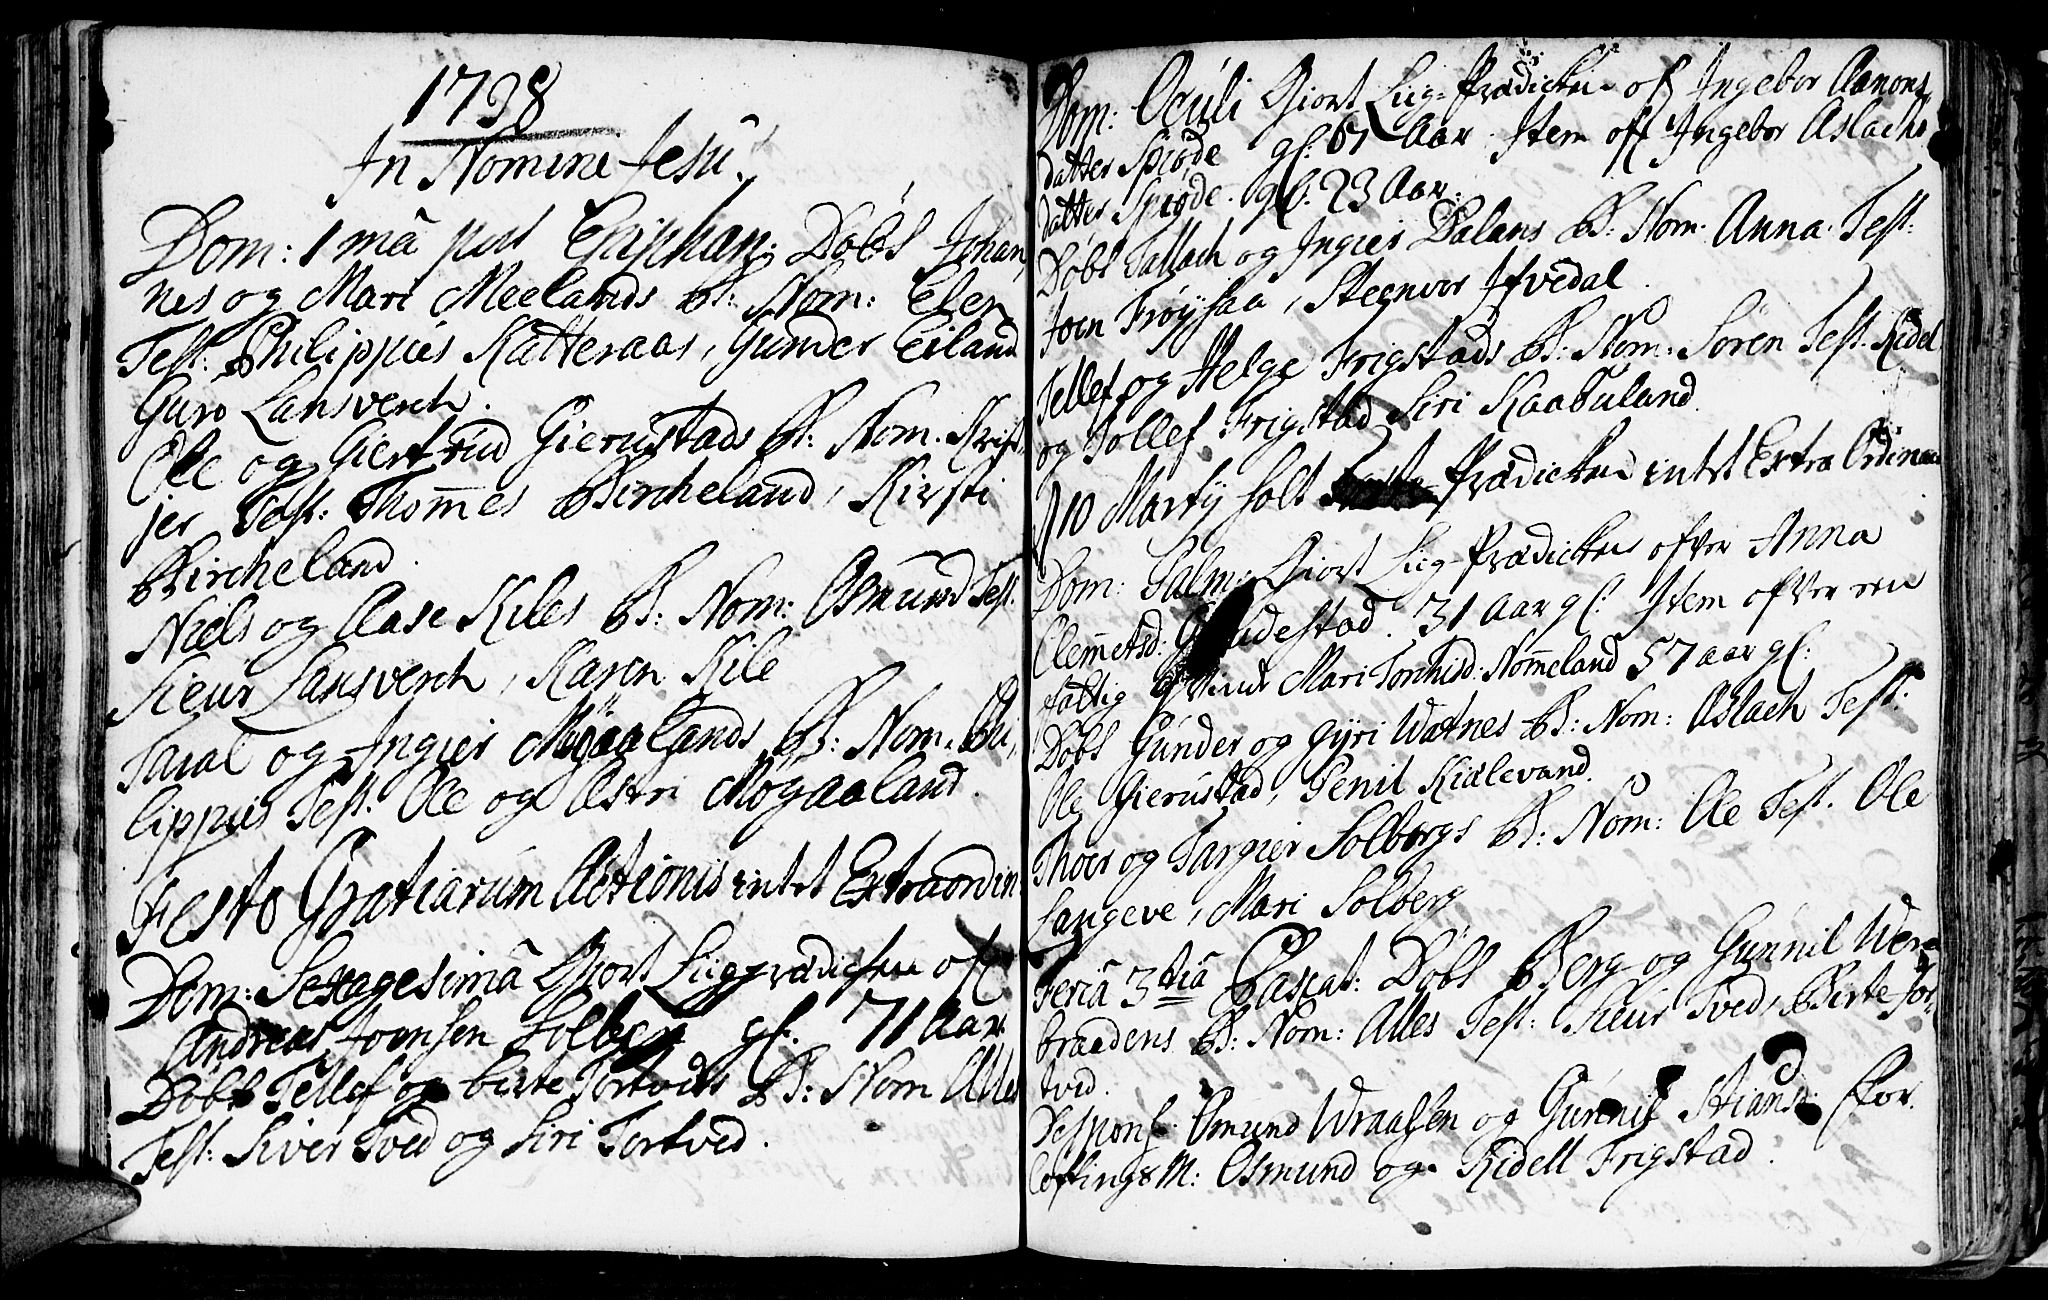 1738
In Nomine Jesu.
Dom: 1 mâ post Epiphan: Döbt Johan,
nes og Mari Meelands B: Nom: Elen
Test: Philippus Katteraas, Gunder Eiland
Guro Lansverch.
Ole og Giertrud Gierustads B: Nom. Krist,
jer Test: Thom̄es Bircheland, Kirsti
Bircheland.
Niels og Aase Kiles B: Nom: Osmund Test.
Sieur Lansverch, Karen Kile
Taral og Ingier Mögaalands B: Nom. Phi,
lippus Test. Ole og Astri Mögaaland.
Festo Gratiarum Actionis intet Extraordin
Dom: Sexagesimâ Giort Liigprædichen off
Andreas Joensen Solberg gl. 71 Aar
Döbt Tellef og birte Tortveds B: Nom Alles
Test: Siver Tved og Siri Tortved.
Dom: Oculi Giort Liig-Prædicken off Ingebor Aanons
datter Spiøde gl: 67 Aar. Item off Ingebor Aslachs
datter Spiøde. gl. 23 Aar.
Döbt Tallach og Ingier Dalans B: Nom. Anna. Test:
Joen Frøysaa, Steenvor Ifvedal.
Tellef og Helge Frigstads B: Nom. Sören Test. Kidel
og Tollef Frigstad Siri Kaabuland.
Martij holt Prædicken intet Extra Ordinair
Dom: Palm: Giort Liig-Prædicken ofver Anna
Clem̄etsd: 31 Aar gl: Item ofver een
fattig qvinde Mari Tom̄eland 57 aar gl:
Döbt Gunder og Gyri Watnes B: Nom: Aslach Test:
Ole Gierustad, Penil Kialevand.
Thoer og Targier Solbergs B: Nom: Ole Test. Ole
Langeve, Mari Solberg
Feriâ 3 tiâ Pascat: Döbt Berg og Gunnil Were
braadens B: Nom: Alles Test: Sieur Tved, Birte Tor,
tved.
Despons: Osmund Wraalsen og Gunnil For.
loffings M: Osmund og Kidell Frigstad.